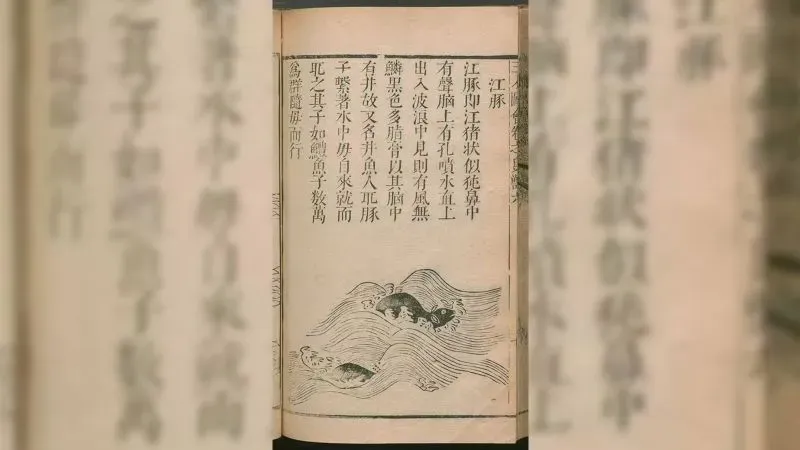 江豚
江豚即江猪狀似㹠鼻中
有聲腦上有孔噴水直上
出入波浪中見則有風無
鱗黑色多脂膏以其腦中
有井故又名井魚人耴豚
子繫著水中毋自來就而
耴之其子如鱧魚子數萬
為群隨毋而行